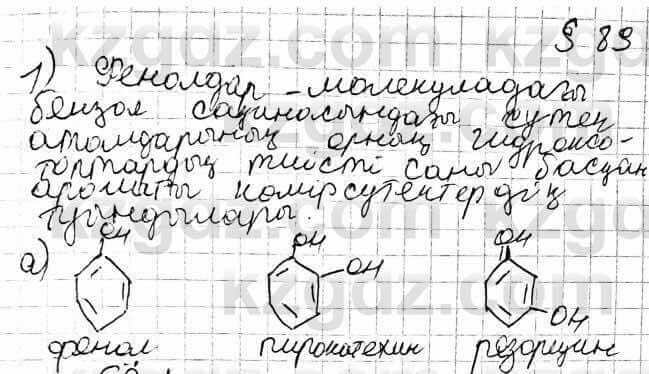 § 89
1) Фенолдар - молекуладағы
бензол сақинасындағы сутек
атомдарының орнын гидроксо-
топтардың тиісті саны басқан
ароматы көмірсутектердің
туындылары.
а) OH OH OH
OH
OH
фенол пирокатехин резорцин
kzgdz.com